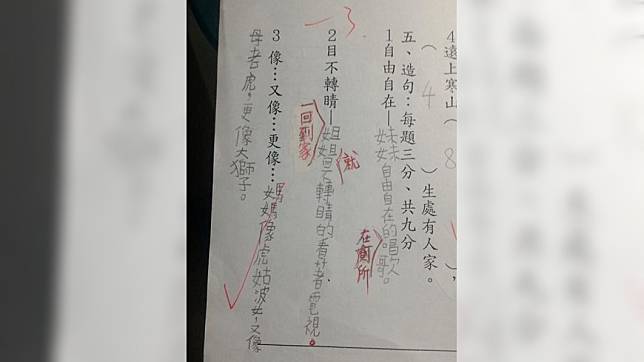 4遠上寒山(8),
(4)生處有人家。
五、造句:每題三分、共九分
1自由自在—妹妹自由自在的唱歌。
在廁所
2目不轉睛—姐姐目不轉睛的看著電視。
一回到家
就
3像…又像…更像…媽媽像虎姑婆,又像
母老虎,更像大獅子。
-3